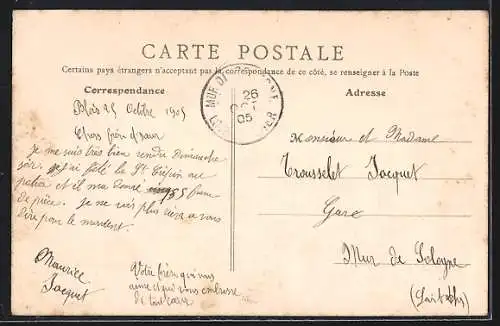 CARTE POSTALE
Certains pays étrangers n'acceptant pas la correspondance de ce côté, se renseigner à la Poste
Correspondance
Adresse
Blois 25 Octobre 1905
MUR DE SOLOGNE
26
05
LOIR ET CHER
Chers frère et sœur
Je me suis très bien rendu Dimanche
soir. J'ai fêté la St Crépin au
patron et il m'a donné 5 francs
de pièce. Je ne vois plus rien a vous
dire pour le moment.
Votre frère qui vous
aime et qui vous embrasse
de tout cœur
Maurice
Jacquet
Monsieur et Madame
Trousselet Jacquet
Gare
Mur de Sologne
(Loir et Cher)